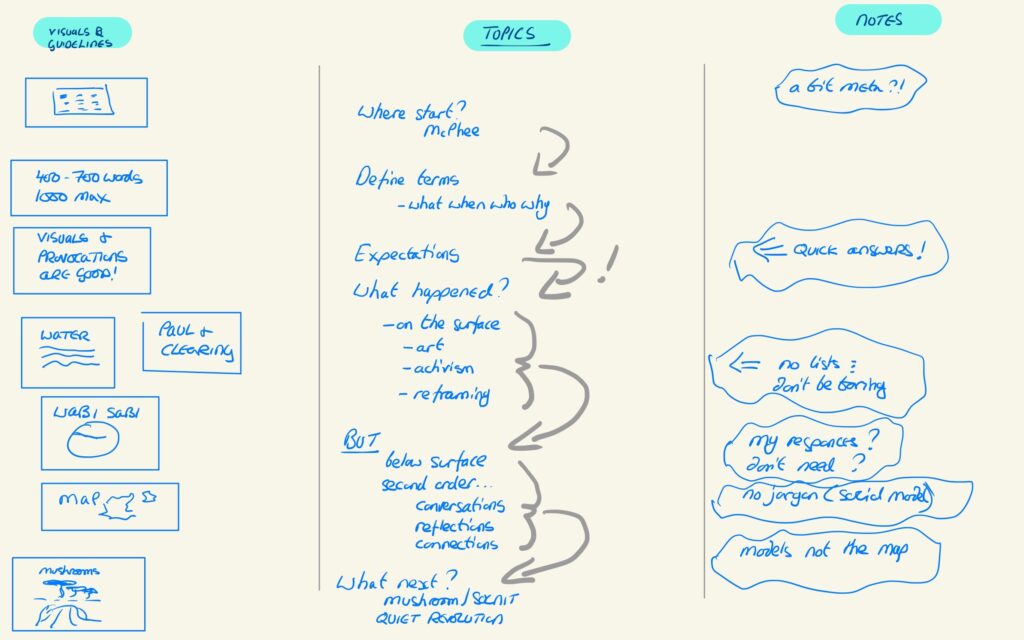 VISUALS &
GUIDELINES
400-700 words
1000 max
VISUALS &
PROVOCATIONS
ARE GOOD!
WATER
PAUL &
CLEARING
WABI SABI
MAP
mushrooms
TOPICS
Where start?
McPhee
Define terms
- what when who why
Expectations
!
What happened?
- on the surface
- art
- activism
- reframing
BUT
below surface
second order...
conversations
reflections
connections
What next?
mushroom / SOLNIT
QUIET REVOLUTION
NOTES
a bit meta?!
QUICK ANSWERS!
no lists :
don't be boring
my responces?
don't need ?
no jargon (social model)
models not the map